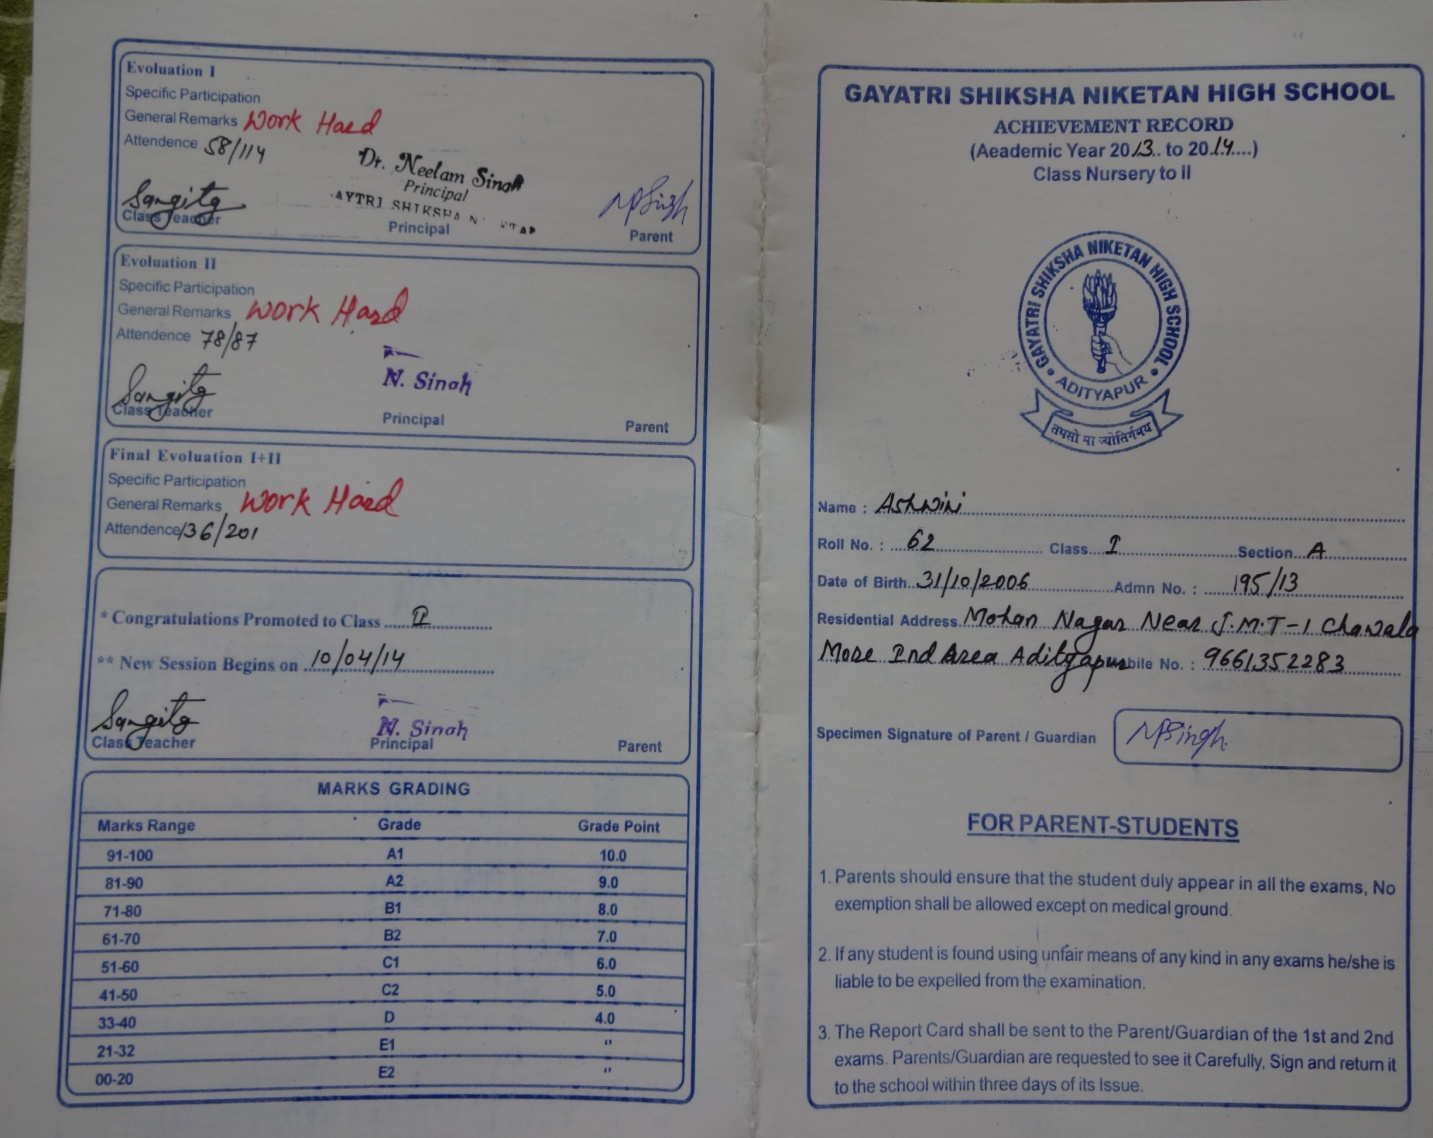 Evoluation I
Specific Participation
General Remarks Work Hard
Attendence 58/114
Dr. Neelam Singh
Principal
AYTRI SHIKSHA
Sangita
Class Teacher
Principal
NPSingh
Parent
Evoluation II
Specific Participation
General Remarks Work Hard
Attendence 78/87
Sangita
Class Teacher
N. Singh
Principal
Parent
Final Evoluation I+II
Specific Participation
General Remarks Work Hard
Attendence 136/201
* Congratulations Promoted to Class .... II
** New Session Begins on .10/04/14
Sangita
Class Teacher
N. Singh
Principal
Parent
MARKS GRADING
Marks Range Grade Grade Point
91-100 A1 10.0
81-90 A2 9.0
71-80 B1 8.0
61-70 B2 7.0
51-60 C1 6.0
41-50 C2 5.0
33-40 D 4.0
21-32 E1 "
00-20 E2 "
GAYATRI SHIKSHA NIKETAN HIGH SCHOOL
ACHIEVEMENT RECORD
(Aeademic Year 2013.. to 20.14....)
Class Nursery to II
GAYATRI SHIKSHA NIKETAN HIGH SCHOOL
• ADITYAPUR •
तमसो मा ज्योतिर्गमय
Name : Ashwini
Roll No. : 62 Class I Section A
Date of Birth 31/10/2006 Admn No. : 195/13
Residential Address Mohan Nagar Near J.M.T-1 Chawala
More Ind Area Adityapur bile No. : 9661352283
Specimen Signature of Parent / Guardian NPSingh
FOR PARENT-STUDENTS
1. Parents should ensure that the student duly appear in all the exams, No
exemption shall be allowed except on medical ground.
2. If any student is found using unfair means of any kind in any exams he/she is
liable to be expelled from the examination.
3. The Report Card shall be sent to the Parent/Guardian of the 1st and 2nd
exams. Parents/Guardian are requested to see it Carefully, Sign and return it
to the school within three days of its Issue.